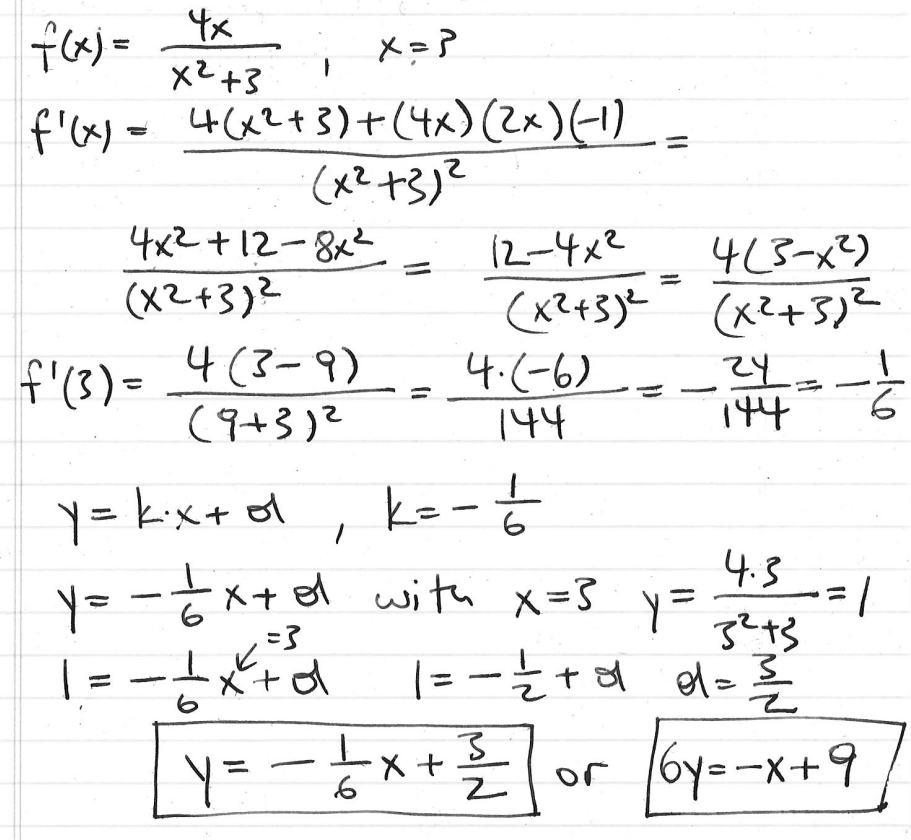 f(x) = 4x / (x² + 3) , x = 3
f'(x) = (4(x² + 3) + (4x)(2x)(-1)) / (x² + 3)² =
(4x² + 12 - 8x²) / (x² + 3)² = (12 - 4x²) / (x² + 3)² = 4(3 - x²) / (x² + 3)²
f'(3) = 4(3 - 9) / (9 + 3)² = 4·(-6) / 144 = - 24/144 = - 1/6
y = k·x + d , k = - 1/6
y = - 1/6 x + d with x = 3 y = 4·3 / (3² + 3) = 1
= 3
1 = - 1/6 x + d 1 = - 1/2 + d d = 3/2
y = - 1/6 x + 3/2 or 6y = -x + 9